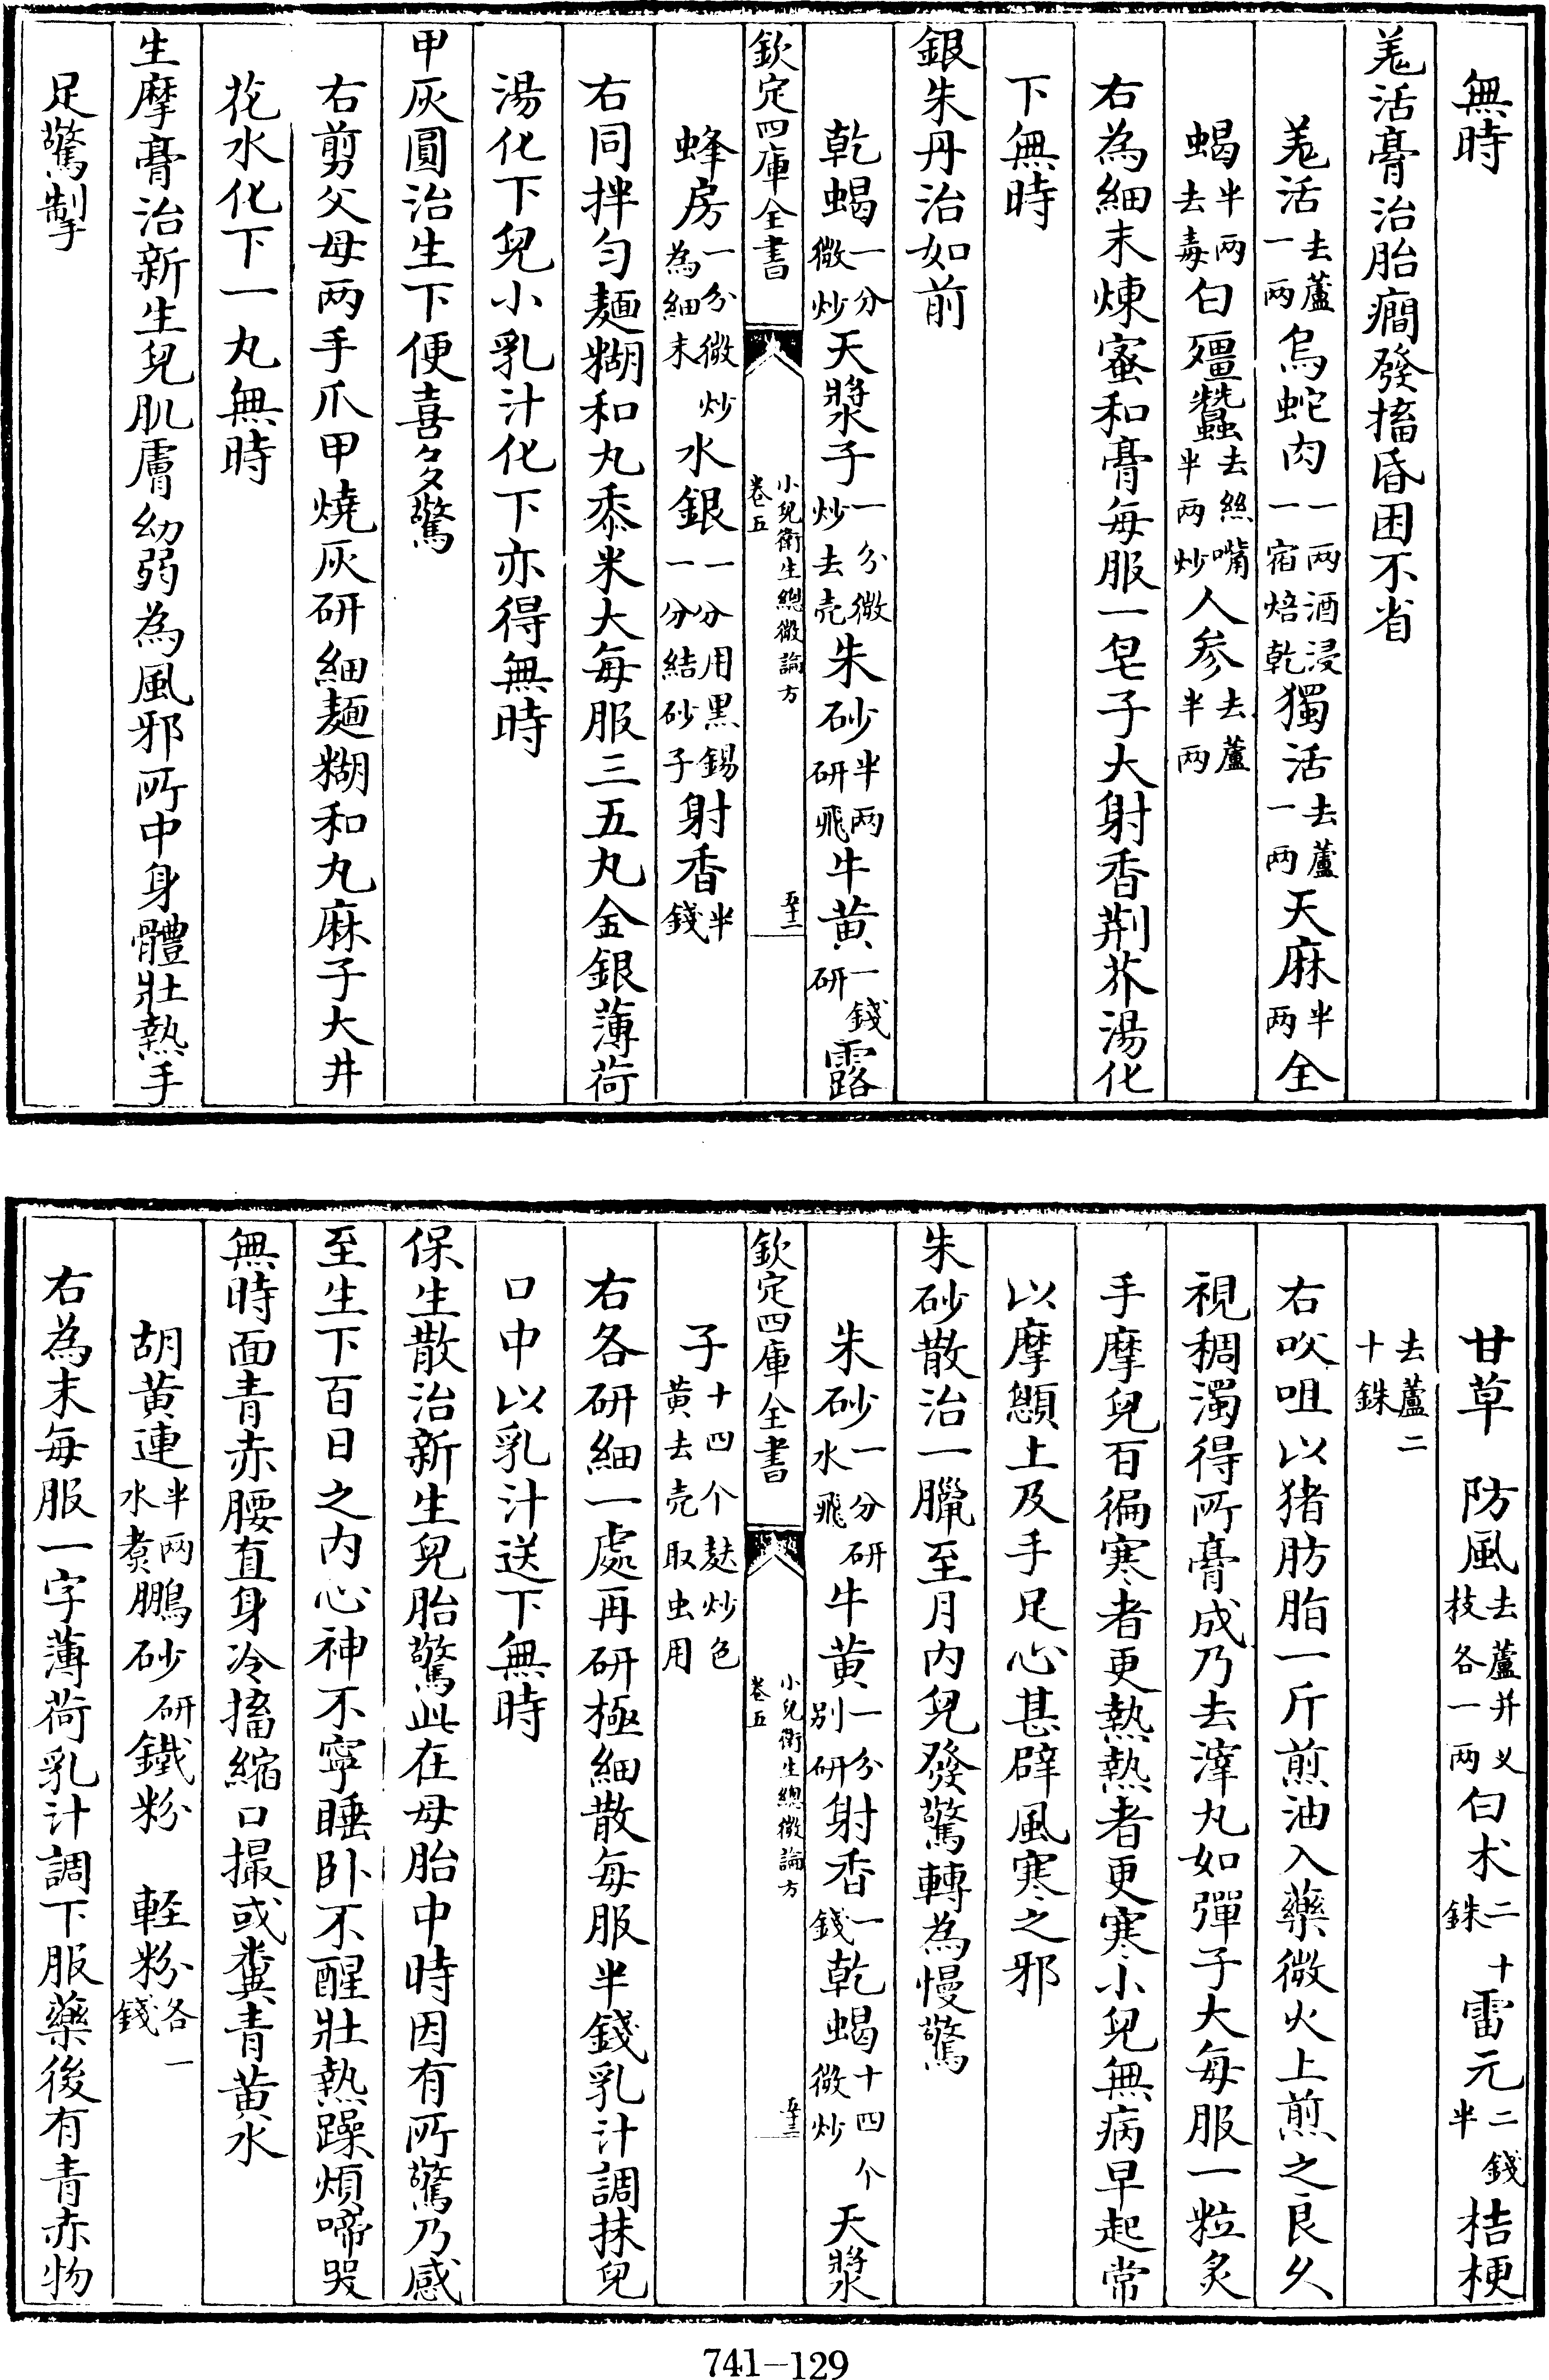 無時
羗活膏治胎癇發搐昏困不省
羗活去蘆一两烏蛇肉一两酒浸一宿焙乾獨活去蘆一两天麻半两全
蝎半两去毒白殭蠶去絲嘴半两炒人參去蘆半两
右為細末煉蜜和膏每服一皂子大射香荆芥湯化
下無時
銀朱丹治如前
乾蝎一分微炒天漿子一分微炒去壳朱砂半两研飛牛黄一錢研露
欽定四庫全書
小兒衛生總微論方
卷五
五十二
蜂房一分微炒為細末水銀一分用黑錫一分結砂子射香半錢
右同拌勻麺糊和丸黍米大每服三五丸金銀薄荷
湯化下兒小乳汁化下亦得無時
甲灰圓治生下便喜多驚
右剪父母两手爪甲燒灰研細麺糊和丸麻子大井
花水化下一丸無時
生摩膏治新生兒肌膚幼弱為風邪所中身體壯熱手
足驚掣
甘草 防風去蘆并义枝各一两白术二十銖雷元二錢半桔梗
去蘆二十銖
右㕮咀以猪肪脂一斤煎油入藥微火上煎之良久
視稠濁得所膏成乃去滓丸如彈子大每服一粒炙
手摩兒百徧寒者更熱熱者更寒小兒無病早起常
以摩顖上及手足心甚辟風寒之邪
朱砂散治一臘至月内兒發驚轉為慢驚
朱砂一分研水飛牛黄一分别研射香一錢乾蝎十四个微炒天漿
欽定四庫全書
小兒衛生總微論方
卷五
五十三
子十四个麸炒色黄去壳取虫用
右各研細一處再研極細散每服半錢乳汁調抹兒
口中以乳汁送下無時
保生散治新生兒胎驚此在母胎中時因有所驚乃感
至生下百日之内心神不寧睡卧不醒壯熱躁煩啼哭
無時面青赤腰直身冷搐縮口撮或糞青黄水
胡黄連半两水煑鵬砂研鐵粉 輕粉各一錢
右為末每服一字薄荷乳汁調下服藥後有青赤物
741-129